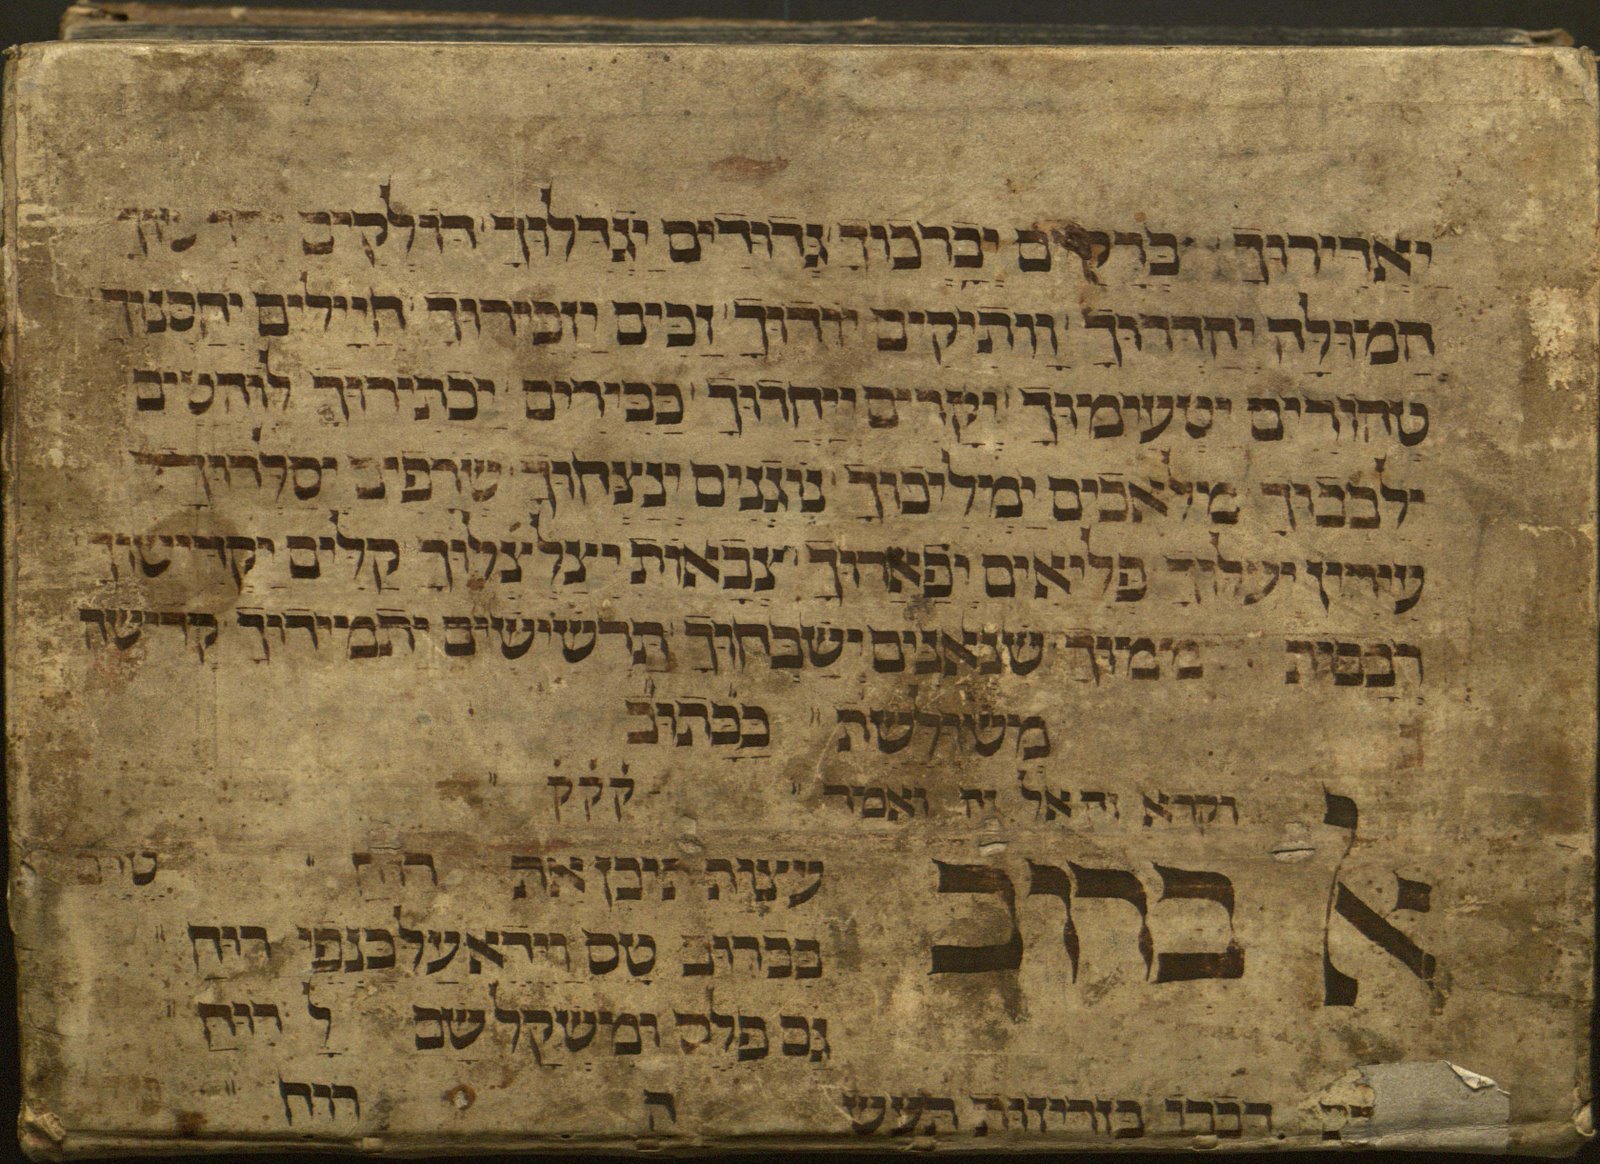 יַאְדִּירוּךָ בְּרָקִים יְבָרְכוּךָ גְּדוּדִים יְגַדְּלוּךָ דּוֹלְקִים
חֲמוּלָה יְהַדְּרוּךָ וָותִיקִים יוֹדוּךָ זַכִּים יַזְכִּירוּךָ חֲיָילִים יְחַסְּנוּךָ
טְהוֹרִים יַטְעִימוּךָ יְקָרִים יְיַחֲדוּךָ כַּבִּירִים יַכְתִּירוּךָ לוֹהֲטִים
ילבבוך מַלְאָכִים יַמְלִיכוּךָ נוֹגְנִים יְנַצְּחוּךָ שְׂרָפִים יְסַלְדוּךָ
עירין יעלוך פְּלִיאִים יְפָאֲרוּךָ צְבָאוֹת יְצַלְצְלוּךָ קַלִּים יַקְדִּישׁוּךָ
רִבְבוֹת מְמוּךָ שִׁנְאַנִּים יְשַׁבְּחוּךָ תַּרְשִׁישִׁים יַתְמִידוּךָ קְדוּשָׁ
מְשׁוּלֶּשֶׁת כַּכָּתוּב
וקרא זה אל זה ואמר ק ק ק
א כרוב עצות תיכן את רוח
כִּכְרוּב טָס וַיֵּרָא עַל כַּנְפֵי רוּחַ
גַּם פֶּלֶס וּמִשְׁקָל שָׂם לָ רוּחַ
דברו בזריזות העש ה רוּחַ